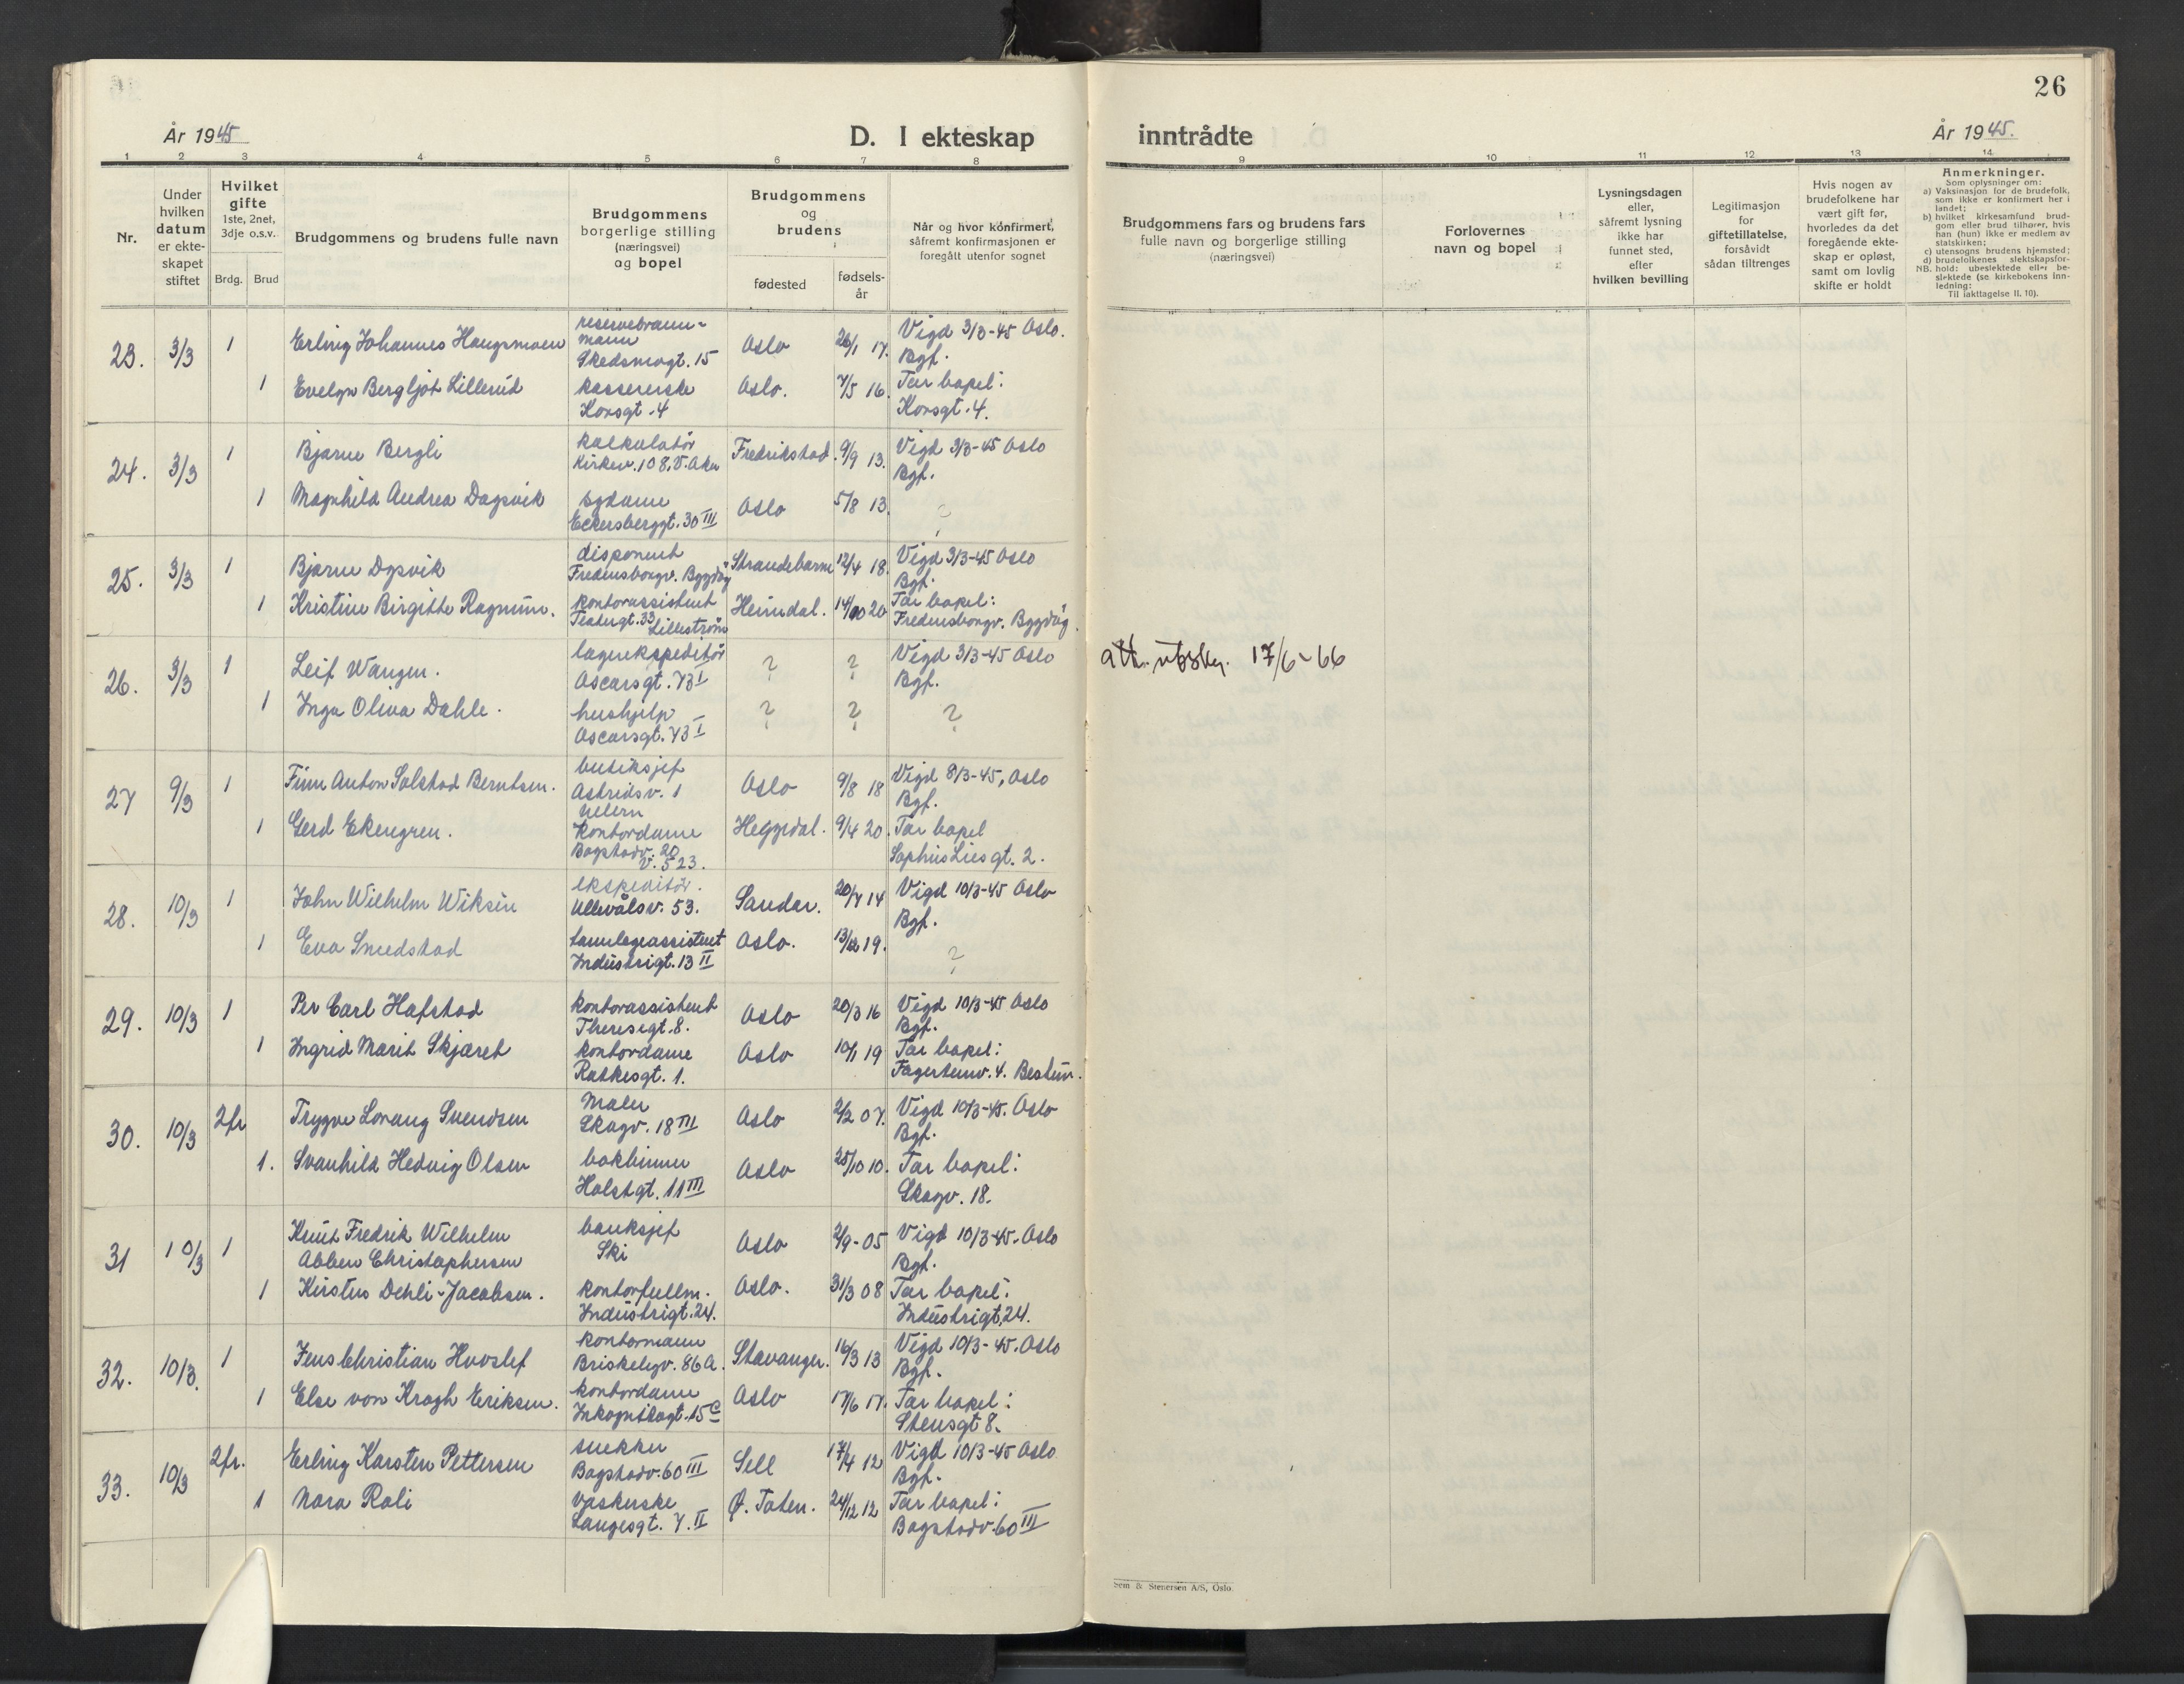 26
År 1945
D. I ekteskap inntrådte
År 1945.
1 2 3 4 5 6 7 8 9 10 11 12 13 14
Nr.
Under
hvilken
datum
er ekte-
skapet
stiftet
Hvilket
gifte
1ste, 2net,
3dje o.s.v.
Brdg. Brud
Brudgommens og brudens fulle navn
Brudgommens
borgerlige stilling
(næringsvei)
og bopel
Brudgommens
og
brudens
fødested
fødsels-
år
Når og hvor konfirmert,
såfremt konfirmasjonen er
foregått utenfor sognet
Brudgommens fars og brudens fars
fulle navn og borgerlige stilling
(næringsvei)
Forlovernes
navn og bopel
Lysningsdagen
eller,
såfremt lysning
ikke har
funnet sted,
efter
hvilken bevilling
Legitimasjon
for
giftetillatelse,
forsåvidt
sådan tiltrenges
Hvis nogen av
brudefolkene har
vært gift før,
hvorledes da det
foregående ekte-
skap er opløst,
samt om lovlig
skifte er holdt
Anmerkninger.
Som oplysninger om:
a) Vaksinasjon for de brudefolk,
som ikke er konfirmert her i
landet;
b) hvilket kirkesamfund brud-
gom eller brud tilhører, hvis
han (hun) ikke er medlem av
statskirken;
c) utensogns brudens hjemsted;
d) brudefolkenes slektskapsfor-
NB. hold: ubeslektede eller be-
slektede (se kirkebokens inn-
ledning:
Til iakttagelse II. 10).
23. 3/3 1 Erling Johannes Haugsmoen
reservebrann-
mann
Skedsmogt. 15
Oslo 26/1 17.
Vigd 3/3-45 Oslo.
Bgf.
1 Evelyn Bergljot Lillerud
kassererske
Korsgt. 4
Oslo. 7/5 16.
Tar bopel:
Korsgt. 4.
24. 3/3 1 Bjarne Bergli
kalkulatør
Kirkev. 108, V. Aker
Fredrikstad. 9/9 13.
Vigd 3/3-45 Oslo
Bgf.
1 Magnhild Andrea Dagsvik
sydame
Eckersberggt. 30 III
Oslo 5/8 13. ?
25. 3/3 1 Bjarne Dysvik
disponent
Fredensborgv. Bygdøy
Strandebarm 12/4 18.
Vigd 3/3-45 Oslo
Bgf.
1 Kristine Birgitte
kontorassistent
Teatergt. 33 Lillestrøm
Heimdal. 14/10 20
Tar bopel:
Fredensborgv. Bygdøy.
26. 3/3 1 Leif Wangen.
lagerekspeditør
Oscarsgt. 73 I
? ?
Vigd 3/3-45 Oslo
Bgf.
1 Inga Oliva Dahle.
hushjelp
Oscarsgt. 73 I
? ? ?
att. utskr. 17/6-66
27 9/3 1 Finn Anton Solstad Berntsen.
butiksjef
Astridsv. 1
Oslo 9/8 18
Vigd 8/3-45, Oslo
Bgf.
1 Gerd Ekengren.
kontordame
Bogstadv. 20
v. 523.
Heggedal. 9/4 20.
Tar bopel
Sophus Lies gt. 2.
28. 10/3 1 John Wilhelm Wiksin
ekspeditør.
Ullevålsv. 53.
Sandar. 20/7 14
Vigd 10/3-45 Oslo
Bgf.
1 Eva Smedstad
tannlegeassistent
Industrigt. 13 II
Oslo. 13/12 19. ?
29. 10/3 1 Per Carl Hafstad
kontorassistent
Theresegt. 8.
Oslo 20/3 16
Vigd 10/3-45 Oslo
Bgf.
1 Ingrid Marit Skjæret
kontordame
Ratkesgt. 1.
Oslo 10/1 19
Tar bopel:
Fagertunv. 4. Bestun.
30. 10/3 2fr Trygve Lorang Svendsen
Maler
Skogv. 18 III
Oslo 2/2 07.
Vigd 10/3-45. Oslo
Bgf.
1. Svanhild Hedvig Olsen
bokbinner
Holstgt. 11 III
Oslo 25/10 10.
Tar bopel:
Skogv. 18.
31 10/3 1 Knut Fredrik Wilhelm
Abben Christophersen
banksjef
Ski
Oslo 2/9-05
Vigd 10/3-45. Oslo
Bgf.
1 Kirsten Dehli-Jacobsen.
kontorfullm.
Industrigt. 24.
Oslo. 31/3 08
Tar bopel:
Industrigt. 24.
32. 10/3. 1 Jens Christian Hvoslef
kontormann
Briskebyv. 86 A.
Stavanger. 16/3 13
Vigd 10/3-45. Oslo
Bgf.
1 Else von Krogh Eriksen.
kontordame
Inkognitogt. 15 C
Oslo 17/6 17.
Tar bopel:
Stensgt 8.
33. 10/3 2fr. Erling Karsten Pettersen
snekker
Bogstadv. 60 III
Sell 17/4 12
Vigd 10/3-45 Oslo
Bgf.
1 Nora Roli
Vaskerske
Langesgt. 7. II
Ø. Toten. 24/12 12
Tar bopel:
Bogstadv. 60 III
Sem & Stenersen A/S, Oslo.